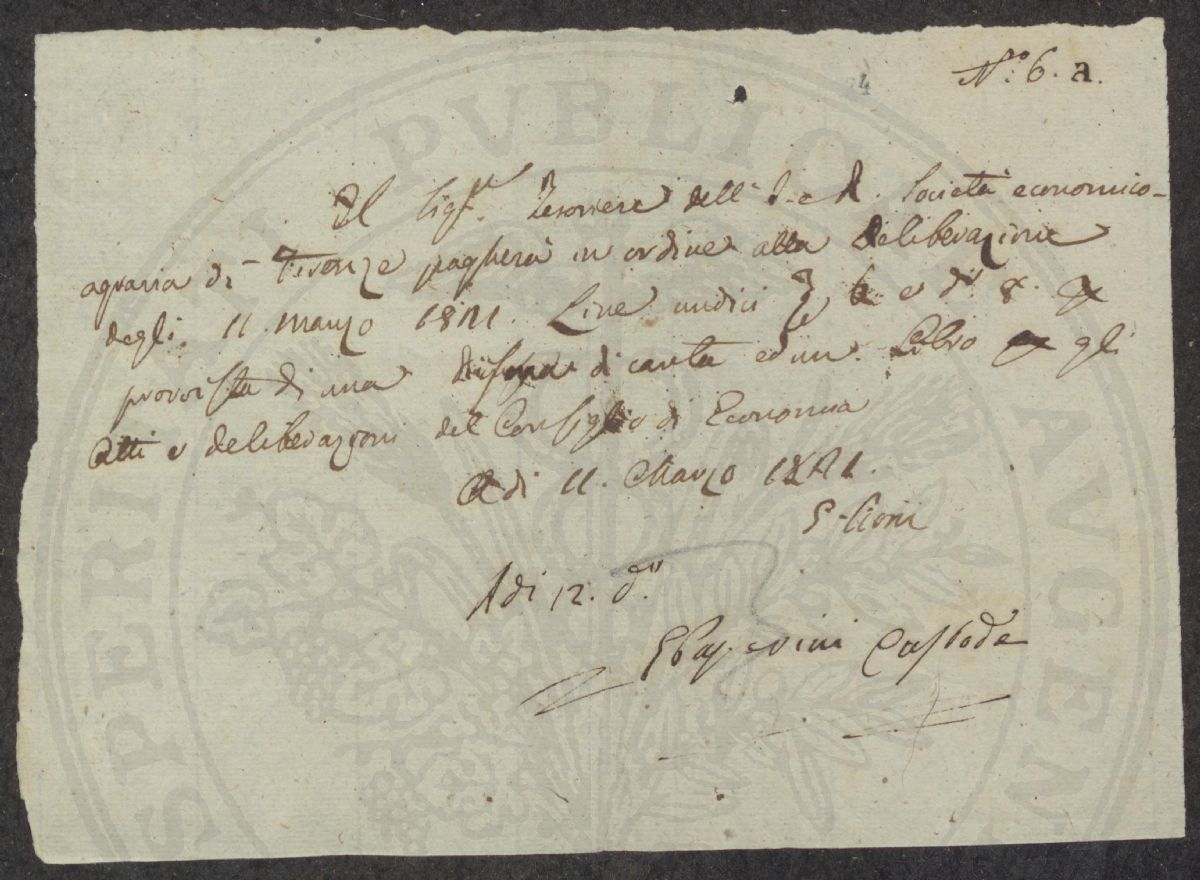 N.ro 6. a.
4
Il Sig.r Tesoriere dell' I. e R. Società economico-
agraria di Firenze pagherà in ordine alla deliberazione
degli 11. Marzo 1821. Lire undici e d. 8. p
provvista di una di carta ed un Libro p gli
Atti e deliberazioni del Consiglio di Economia
A dì 11. Marzo 1821.
Adi 12. d.o
Gasperini Custode
PROSPERITATI PVBLICAE AVGENDAE